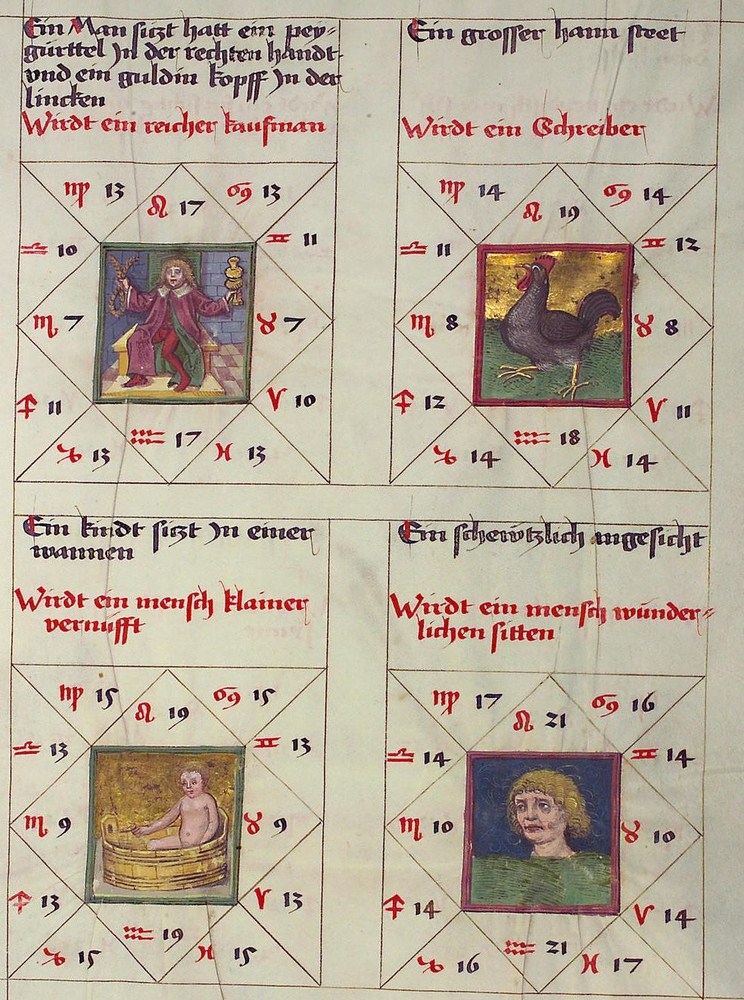 Ein Man sitzt hatt ein pey-
gürttel Jn der rechten handt
vnd ein guldin kopff Jn der
lincken
Wirdt ein reicher kaufman
♍ 13 ♌ 17 ♋ 13
♎ 10 ♊ 11
♏ 7 ♉ 7
♐ 11 ♈ 10
♑ 13 ♒ 17 ♓ 13
Ein grosser hann steet
Wirdt ein Schreiber
♍ 14 ♌ 19 ♋ 14
♎ 11 ♊ 12
♏ 8 ♉ 8
♐ 12 ♈ 11
♑ 14 ♒ 18 ♓ 14
Ein kindt sitzt Jn einer
wannen
Wirdt ein mensch klainer
vernufft
♍ 15 ♌ 19 ♋ 15
♎ 13 ♊ 13
♏ 9 ♉ 9
♐ 13 ♈ 13
♑ 15 ♒ 19 ♓ 15
Ein schewtzlich angesicht
Wirdt ein mensch wünder-
lichen sitten
♍ 17 ♌ 21 ♋ 16
♎ 14 ♊ 14
♏ 10 ♉ 10
♐ 14 ♈ 14
♑ 16 ♒ 21 ♓ 17